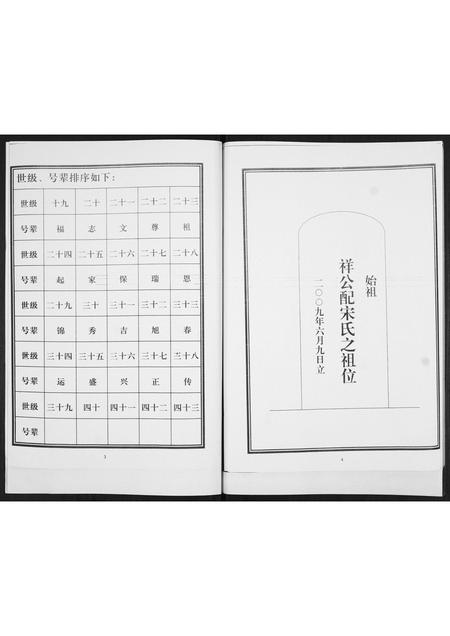 世级、号辈排序如下：
世级 十九 二十 二十一 二十二 二十三
号辈 福 志 文 尊 祖
世级 二十四 二十五 二十六 二十七 二十八
号辈 起 家 保 瑞 恩
世级 二十九 三十 三十一 三十二 三十三
号辈 锦 秀 吉 旭 春
世级 三十四 三十五 三十六 三十七 三十八
号辈 运 盛 兴 正 传
世级 三十九 四十 四十一 四十二 四十三
号辈
3
始祖
祥公配宋氏之祖位
二〇〇九年六月九日立
4